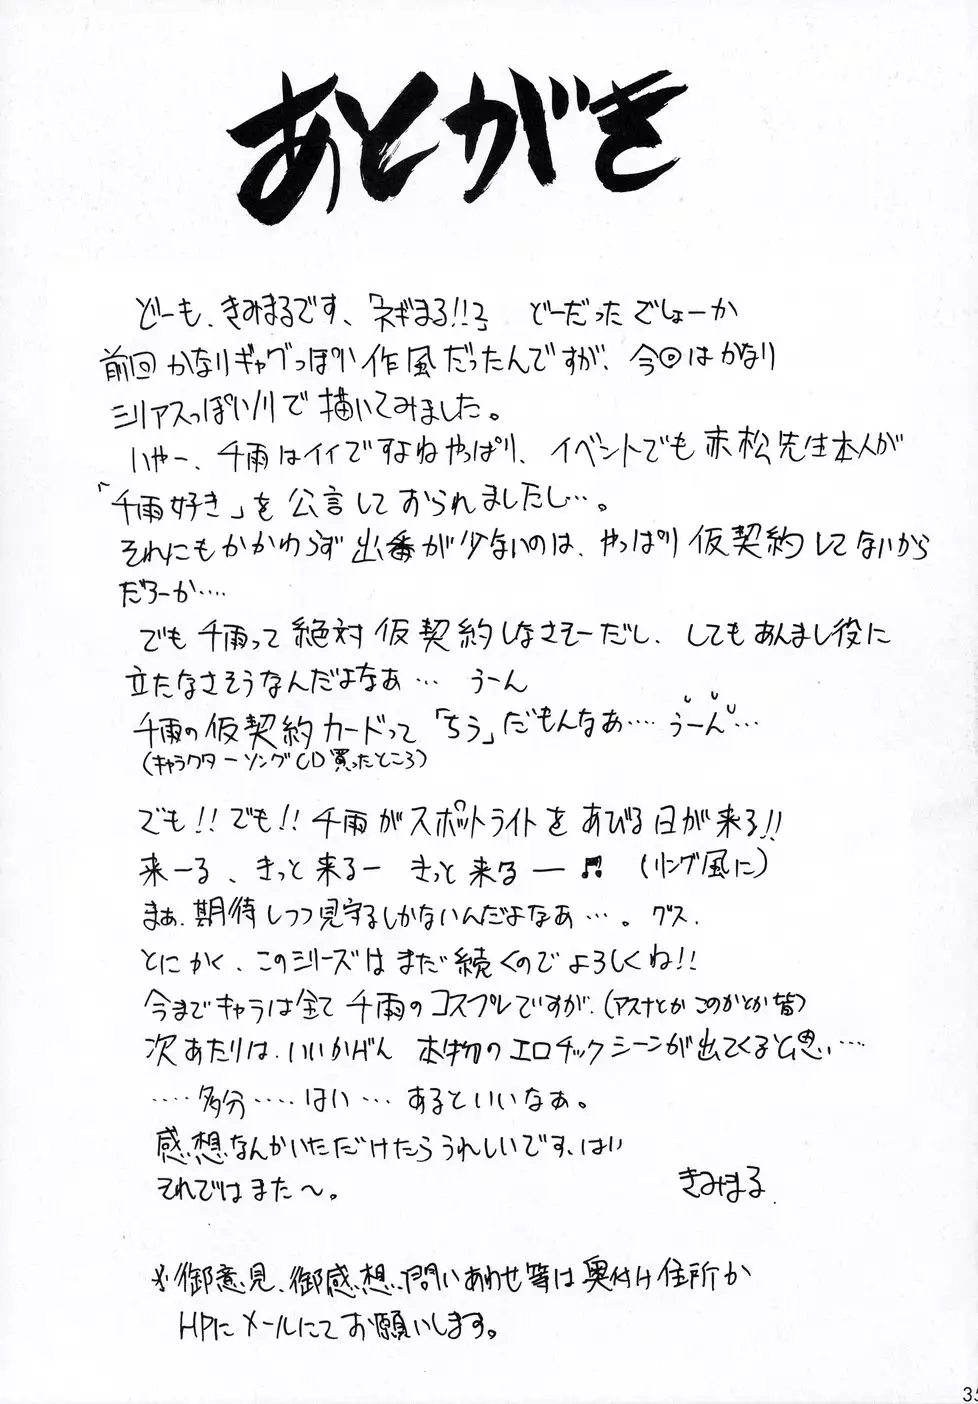 あとがき
どーも、きみまるです、「ネギまる!!2」どーだったでしょーか
前回かなりギャグっぽい作風だったんですが、今回はかなり
シリアスっぽいノリで描いてみました。
いやー、千雨はイイですよねやっぱり、イベントでも赤松先生本人が
「千雨好き」を公言しておられましたし…。
それにもかかわらず出番が少ないのは、やっぱり仮契約してないから
だろーか‥‥
でも千雨って絶対仮契約しなさそーだし、してもあんまし役に
立たなさそうなんだよなあ… うーん
千雨の仮契約カードって「ちう」だもんなあ‥‥うーん…
(キャラクターソングCD買ったところ)
でも!!でも!!千雨がスポットライトをあびる日が来る!!
来ーる、きっと来るー きっと来るー♬ (リング風に)
まぁ、期待しつつ見守るしかないんだよなあ…。グス.
とにかく、このシリーズはまだ続くのでよろしくね!!
今までキャラは全て千雨のコスプレですが、(アスナとかこのかとか皆)
次あたりは、いいかげん本物のエロチックシーンが出てくると思い…
‥‥多分‥‥はい…あるといいなぁ。
感想なんかいただけたらうれしいです、はい
それではまた〜。
きみまる
※御意見、御感想、問いあわせ等は奥付け住所か
HPにメールにてお願いします。
35